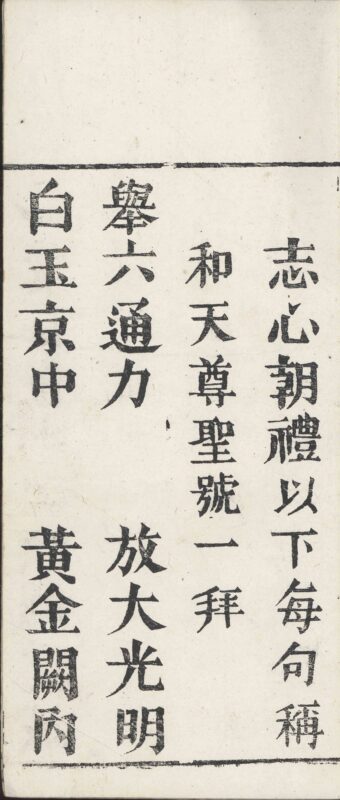 志心朝禮以下每句稱
和天尊聖號一拜
舉六通力　放大光明
白玉京中　黃金闕丙